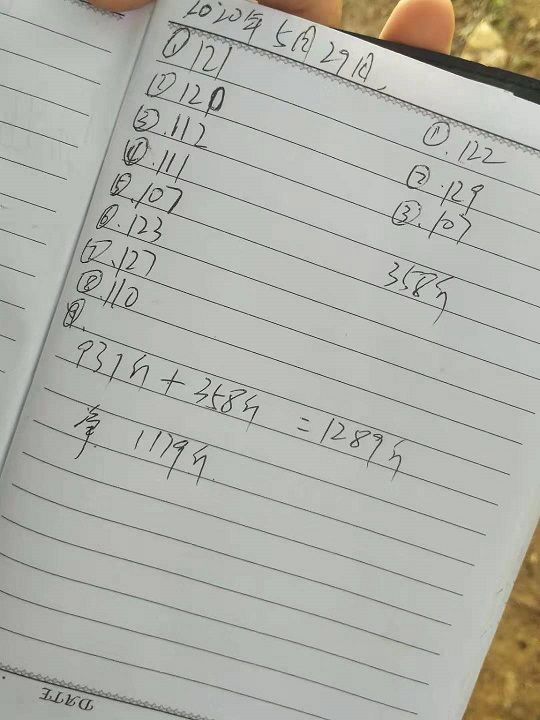 2020年5月29日
①121
②120
③.112
④.111
⑤.107
⑥.123
⑦.127
⑧.110
⑨.
①.122
②.129
③.107
358分
931分+358分=1289分
1179分
DATE